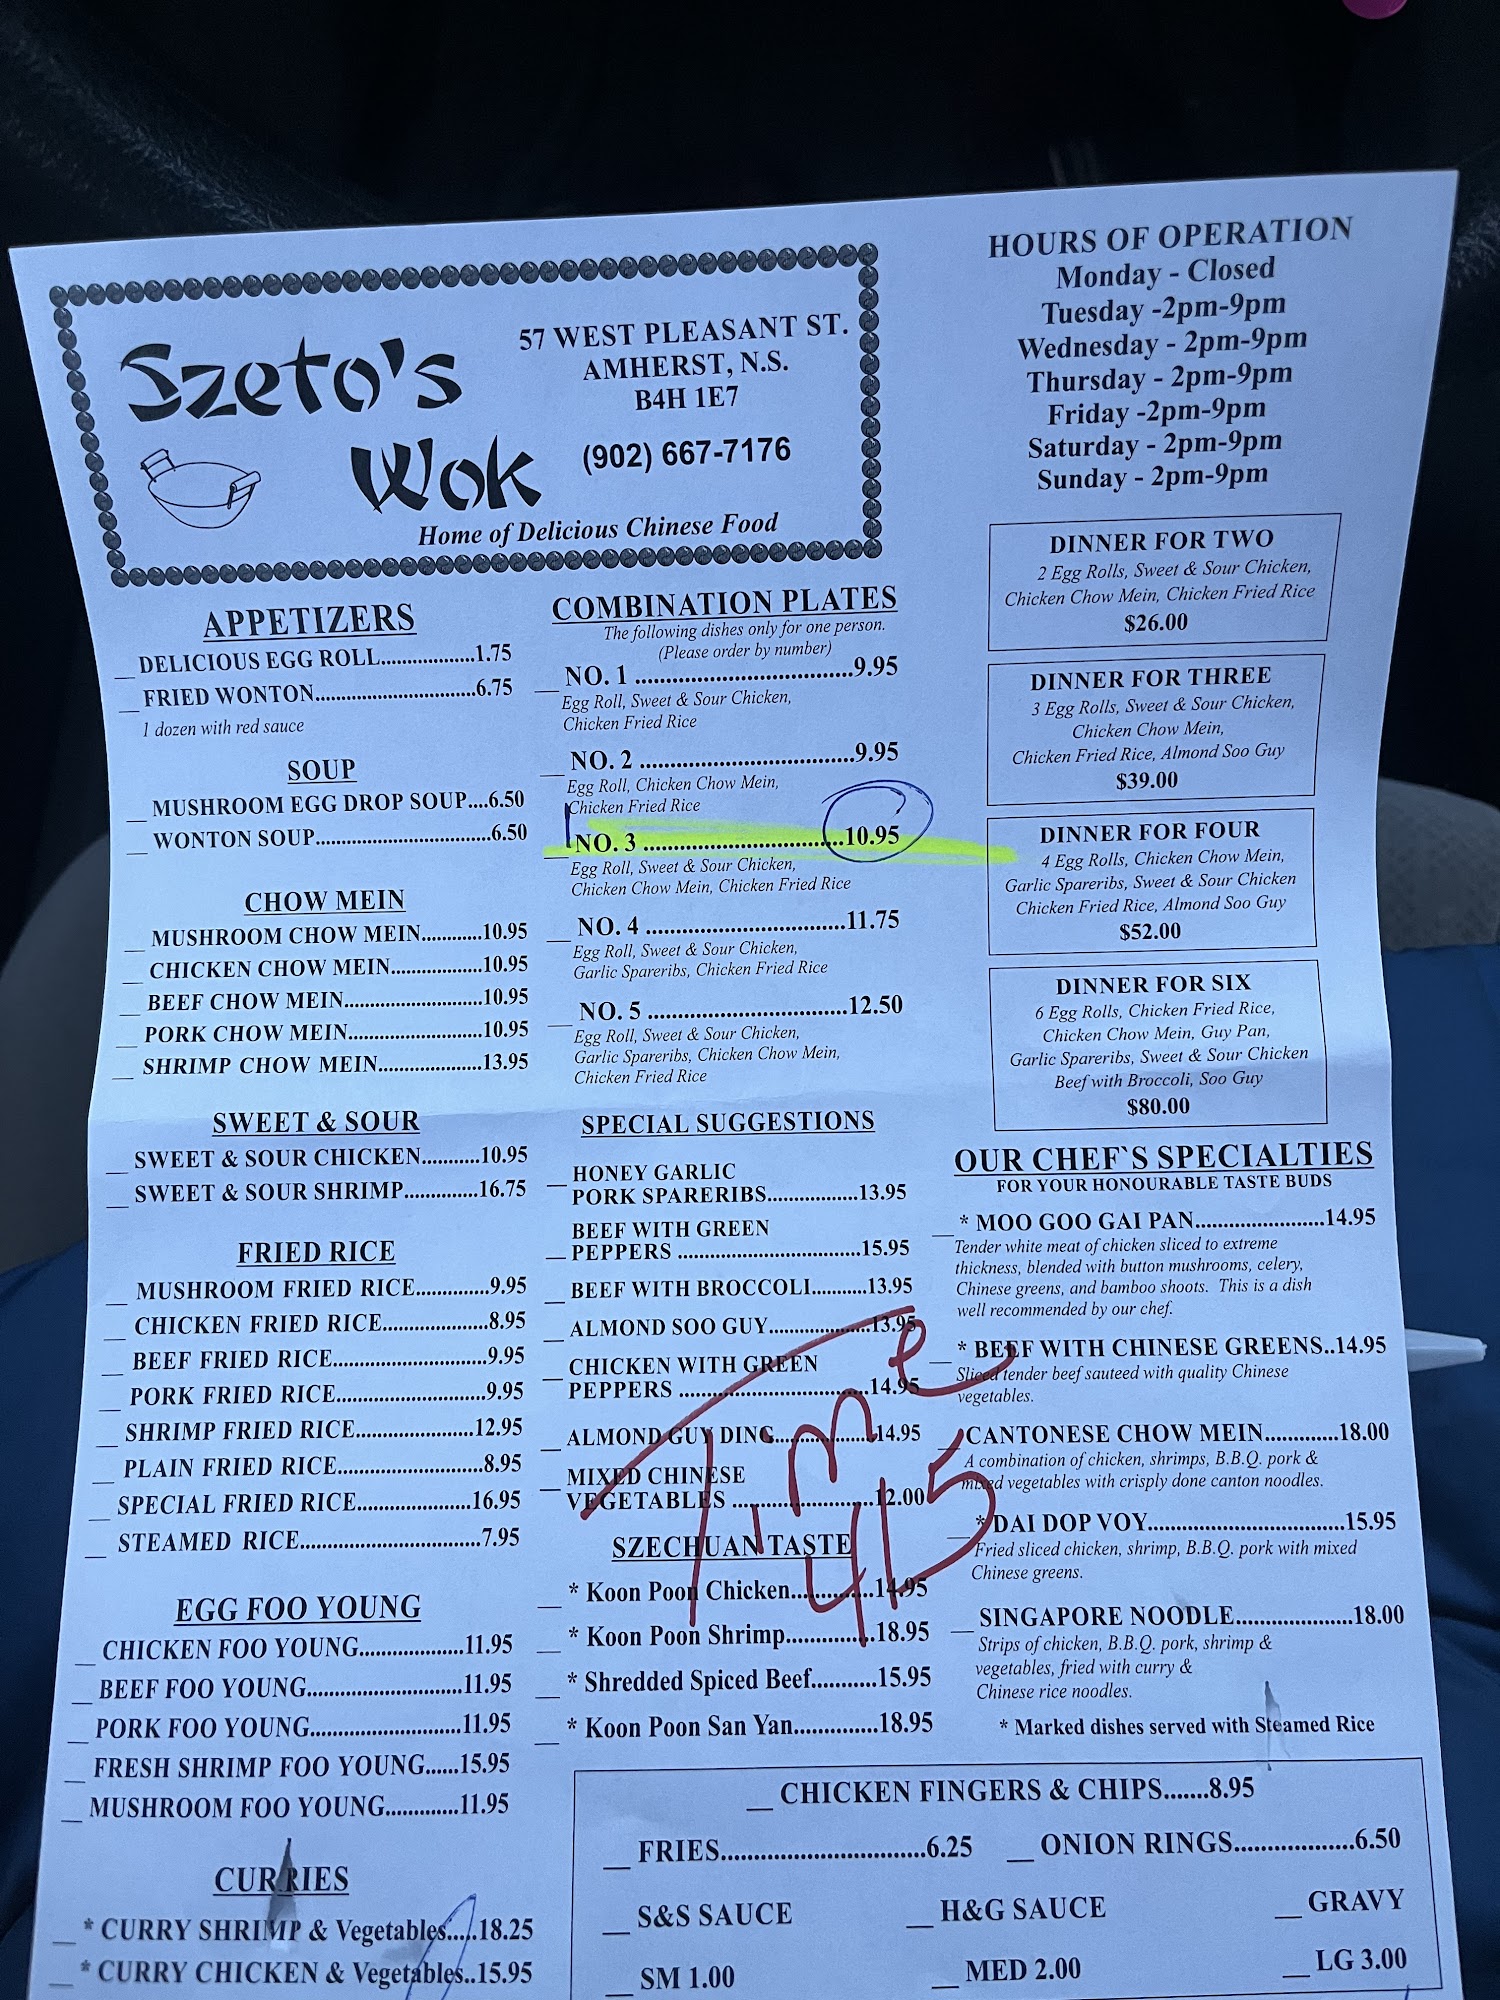 Szeto's
Wok
57 WEST PLEASANT ST.
AMHERST, N.S.
B4H 1E7
(902) 667-7176
Home of Delicious Chinese Food
HOURS OF OPERATION
Monday - Closed
Tuesday -2pm-9pm
Wednesday - 2pm-9pm
Thursday - 2pm-9pm
Friday -2pm-9pm
Saturday - 2pm-9pm
Sunday - 2pm-9pm
APPETIZERS
DELICIOUS EGG ROLL..................1.75
FRIED WONTON...............................6.75
1 dozen with red sauce
SOUP
MUSHROOM EGG DROP SOUP....6.50
WONTON SOUP..................................6.50
CHOW MEIN
MUSHROOM CHOW MEIN............10.95
CHICKEN CHOW MEIN..................10.95
BEEF CHOW MEIN...........................10.95
PORK CHOW MEIN..........................10.95
SHRIMP CHOW MEIN....................13.95
SWEET & SOUR
SWEET & SOUR CHICKEN...........10.95
SWEET & SOUR SHRIMP..............16.75
FRIED RICE
MUSHROOM FRIED RICE..............9.95
CHICKEN FRIED RICE....................8.95
BEEF FRIED RICE.............................9.95
PORK FRIED RICE............................9.95
SHRIMP FRIED RICE......................12.95
PLAIN FRIED RICE...........................8.95
SPECIAL FRIED RICE.....................16.95
STEAMED RICE.................................7.95
EGG FOO YOUNG
CHICKEN FOO YOUNG....................11.95
BEEF FOO YOUNG.............................11.95
PORK FOO YOUNG............................11.95
FRESH SHRIMP FOO YOUNG......15.95
MUSHROOM FOO YOUNG.............11.95
CURRIES
* CURRY SHRIMP & Vegetables.....18.25
* CURRY CHICKEN & Vegetables..15.95
COMBINATION PLATES
The following dishes only for one person.
(Please order by number)
NO. 1 ......................................9.95
Egg Roll, Sweet & Sour Chicken,
Chicken Fried Rice
NO. 2 ......................................9.95
Egg Roll, Chicken Chow Mein,
Chicken Fried Rice
NO. 3 ....................................10.95
Egg Roll, Sweet & Sour Chicken,
Chicken Chow Mein, Chicken Fried Rice
NO. 4 ....................................11.75
Egg Roll, Sweet & Sour Chicken,
Garlic Spareribs, Chicken Fried Rice
NO. 5 ....................................12.50
Egg Roll, Sweet & Sour Chicken,
Garlic Spareribs, Chicken Chow Mein,
Chicken Fried Rice
SPECIAL SUGGESTIONS
HONEY GARLIC
PORK SPARERIBS.................13.95
BEEF WITH GREEN
PEPPERS ..................................15.95
BEEF WITH BROCCOLI...........13.95
ALMOND SOO GUY...................13.95
CHICKEN WITH GREEN
PEPPERS ..................................14.95
ALMOND GUY DING..................14.95
MIXED CHINESE
VEGETABLES .........................12.00
Time
415
SZECHUAN TASTE
* Koon Poon Chicken...............14.95
* Koon Poon Shrimp................18.95
* Shredded Spiced Beef...........15.95
* Koon Poon San Yan..............18.95
DINNER FOR TWO
2 Egg Rolls, Sweet & Sour Chicken,
Chicken Chow Mein, Chicken Fried Rice
$26.00
DINNER FOR THREE
3 Egg Rolls, Sweet & Sour Chicken,
Chicken Chow Mein,
Chicken Fried Rice, Almond Soo Guy
$39.00
DINNER FOR FOUR
4 Egg Rolls, Chicken Chow Mein,
Garlic Spareribs, Sweet & Sour Chicken
Chicken Fried Rice, Almond Soo Guy
$52.00
DINNER FOR SIX
6 Egg Rolls, Chicken Fried Rice,
Chicken Chow Mein, Guy Pan,
Garlic Spareribs, Sweet & Sour Chicken
Beef with Broccoli, Soo Guy
$80.00
OUR CHEF`S SPECIALTIES
FOR YOUR HONOURABLE TASTE BUDS
* MOO GOO GAI PAN.......................14.95
Tender white meat of chicken sliced to extreme
thickness, blended with button mushrooms, celery,
Chinese greens, and bamboo shoots. This is a dish
well recommended by our chef.
* BEEF WITH CHINESE GREENS..14.95
Sliced tender beef sauteed with quality Chinese
vegetables.
CANTONESE CHOW MEIN.............18.00
A combination of chicken, shrimps, B.B.Q. pork &
mixed vegetables with crisply done canton noodles.
* DAI DOP VOY...................................15.95
Fried sliced chicken, shrimp, B.B.Q. pork with mixed
Chinese greens.
SINGAPORE NOODLE.....................18.00
Strips of chicken, B.B.Q. pork, shrimp &
vegetables, fried with curry &
Chinese rice noodles.
* Marked dishes served with Steamed Rice
CHICKEN FINGERS & CHIPS.......8.95
FRIES.............................6.25
ONION RINGS..................6.50
S&S SAUCE
H&G SAUCE
GRAVY
SM 1.00
MED 2.00
LG 3.00